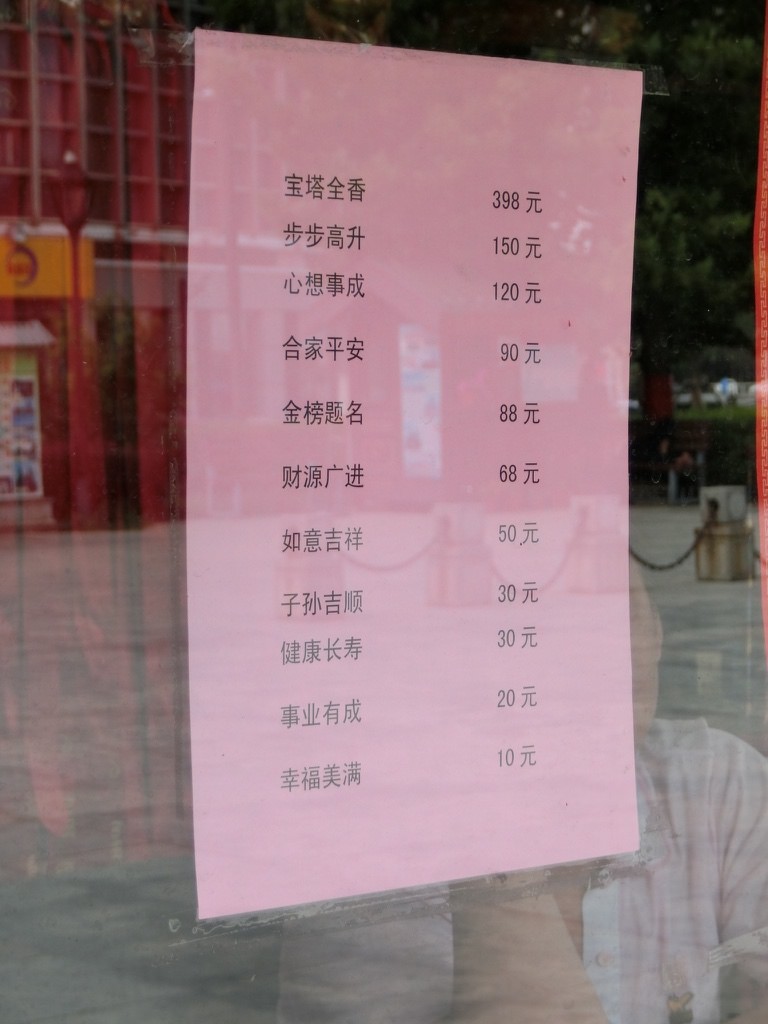 宝塔全香 398 元
步步高升 150 元
心想事成 120 元
合家平安 90 元
金榜题名 88 元
财源广进 68 元
如意吉祥 50 元
子孙吉顺 30 元
健康长寿 30 元
事业有成 20 元
幸福美满 10 元